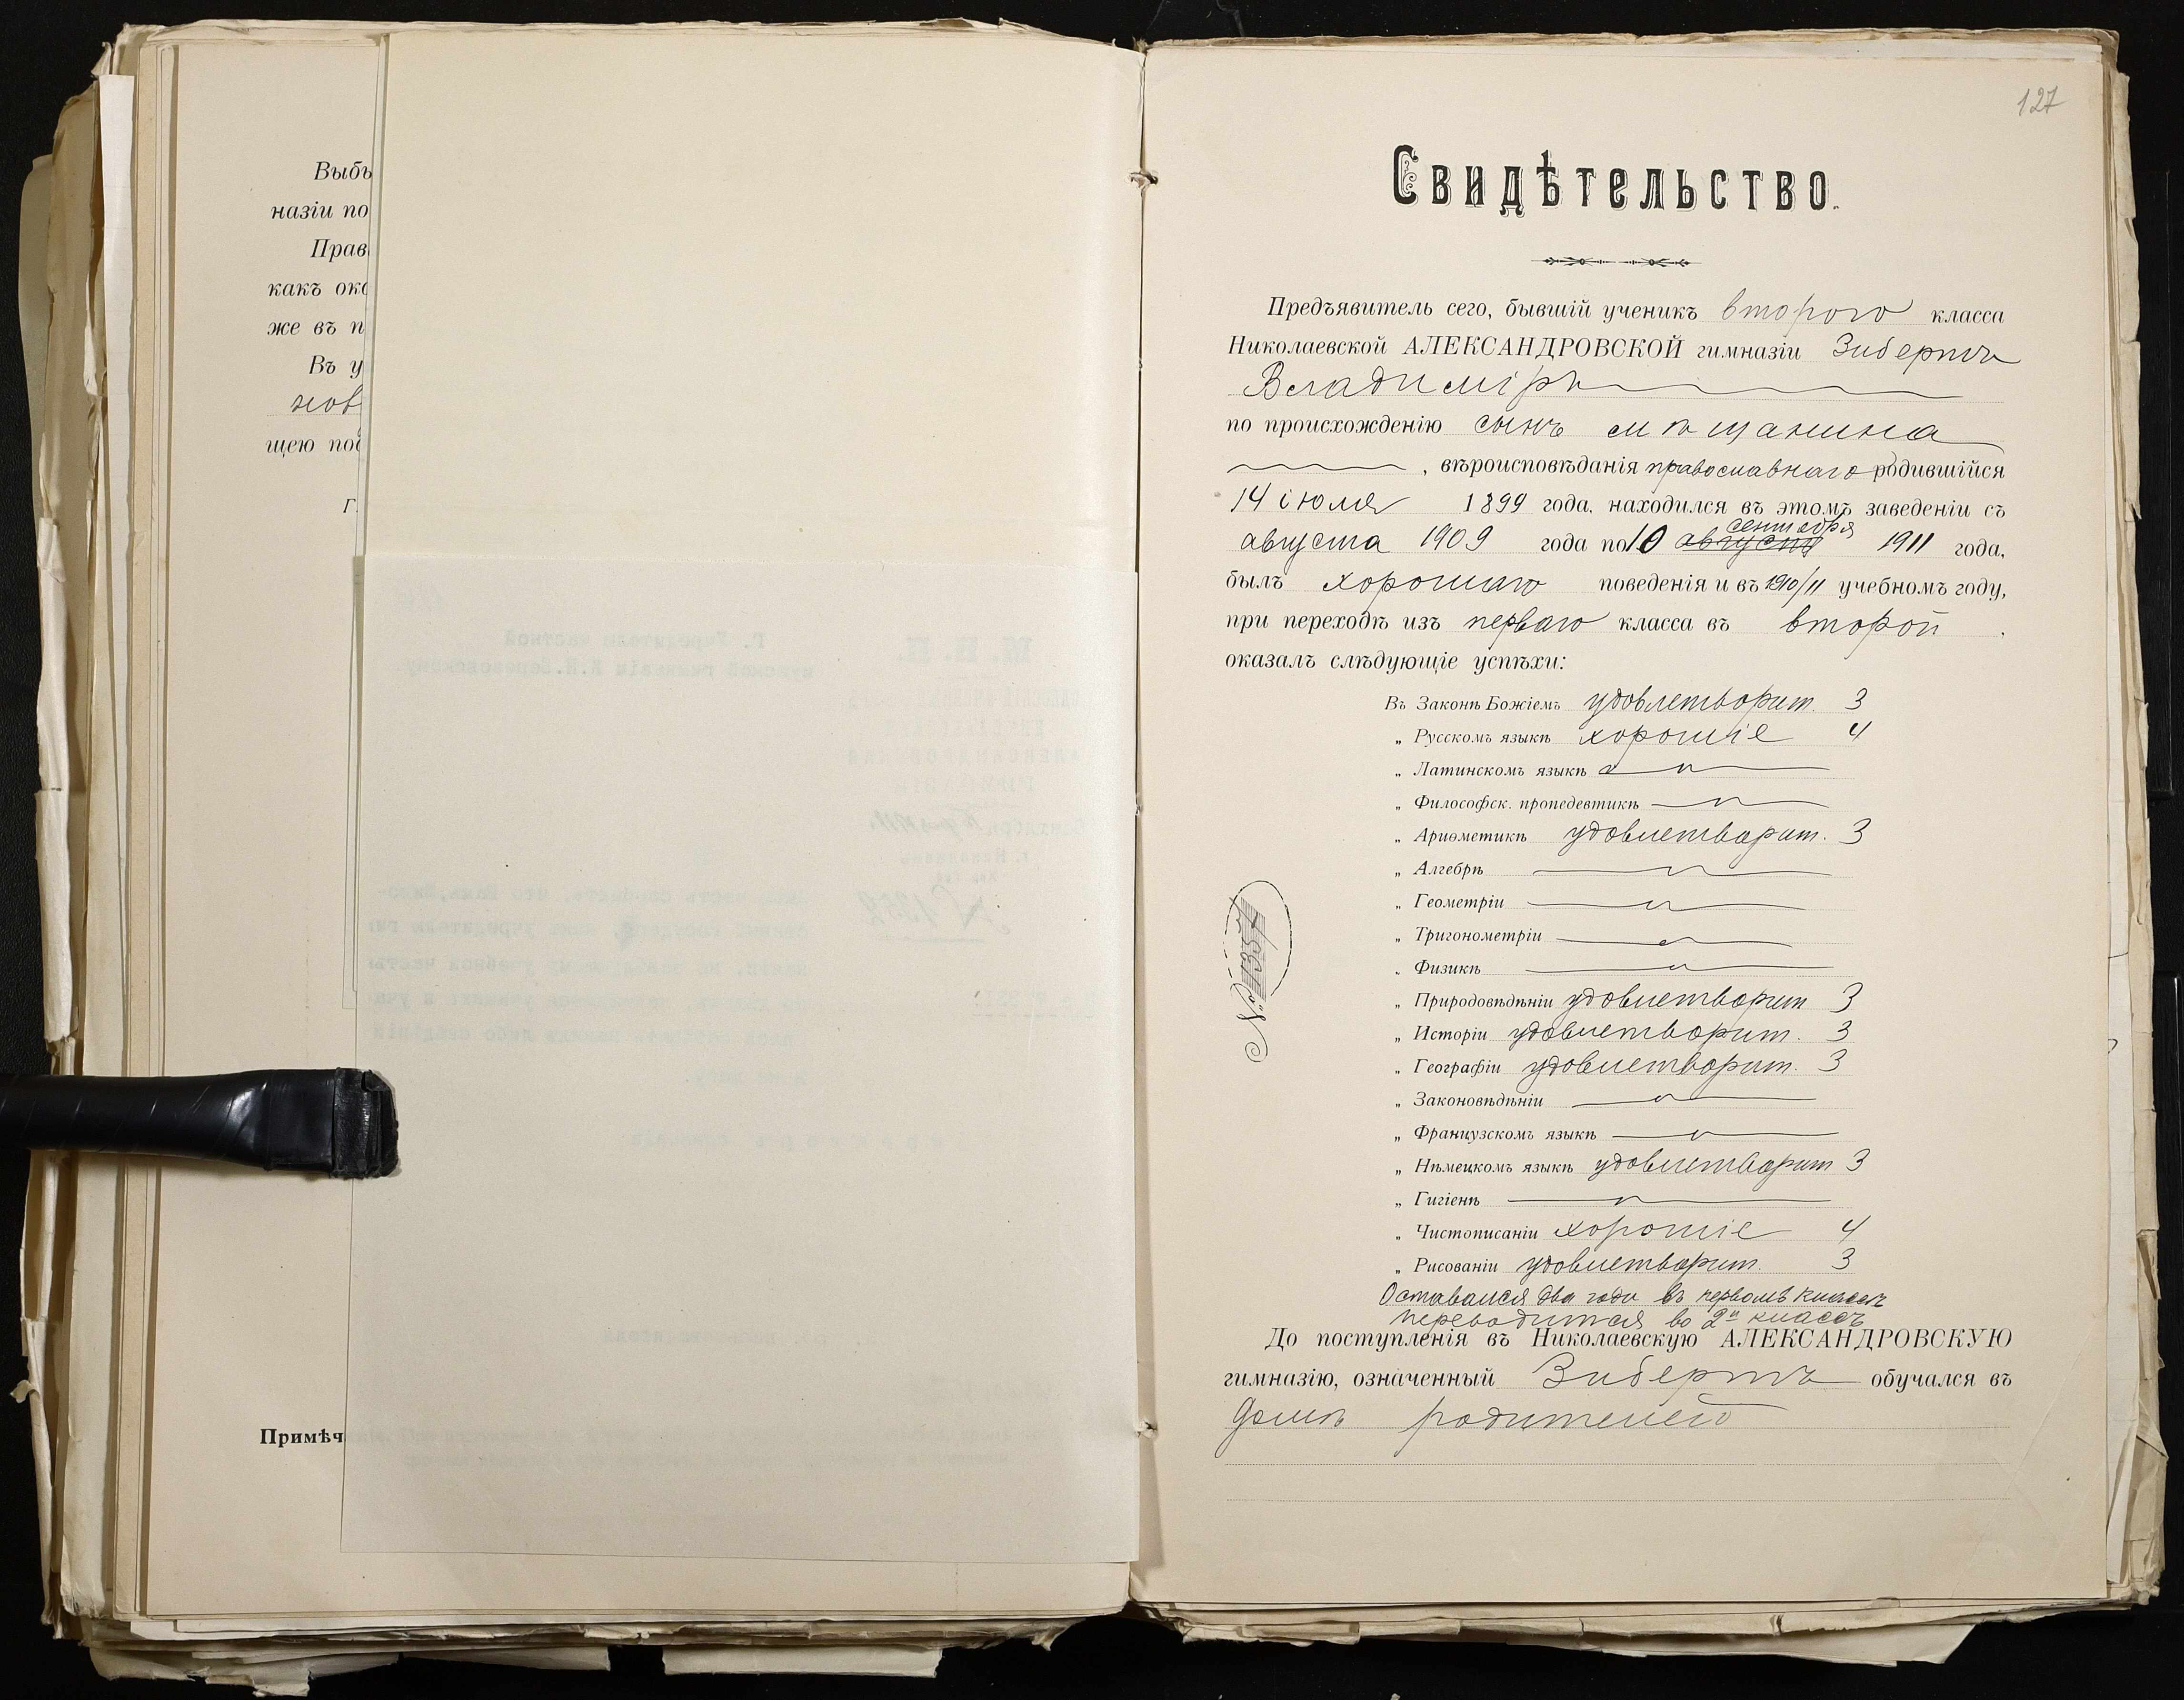 Выбы
назіи по
Прав
какъ око
же въ п
Въ у
нов
щею под
г.
Примѣч
127
Свидѣтельство.
Предъявитель сего, бывшій ученикъ второго класса
Николаевской АЛЕКСАНДРОВСКОЙ гимназіи Зибертъ
Владиміръ
по происхожденію сынъ мѣщанина
, вѣроисповѣданія православнаго родившійся
14 іюля 1899 года, находился въ этомъ заведеніи съ
сентября
августа 1909 года по 10 августа 1911 года,
былъ хорошаго поведенія и въ 1910/11 учебномъ году,
при переходѣ изъ перваго класса въ второй .
оказалъ слѣдующіе успѣхи:
Въ Законѣ Божіемъ удовлетворит. 3
„ Русскомъ языкѣ хорошіе 4
„ Латинскомъ языкѣ
„ Философск. пропедевтикѣ
„ Ариѳметикѣ удовлетворит. 3
„ Алгебрѣ
„ Геометріи
„ Тригонометріи
„ Физикѣ
„ Природовѣдѣніи удовлетворит 3
„ Исторіи удовлетворит. 3
„ Географіи удовлетворит. 3
„ Законовѣдѣніи
„ Французскомъ языкѣ
„ Нѣмецкомъ языкѣ удовлетворит 3
„ Гигіенѣ
„ Чистописаніи хорошіе 4
„ Рисованіи удовлетворит. 3
Оставался два года въ первомъ классѣ
переводится во 2й классъ
До поступленія въ Николаевскую АЛЕКСАНДРОВСКУЮ
гимназію, означенный Зибертъ обучался въ
домѣ родителей
№ 1357